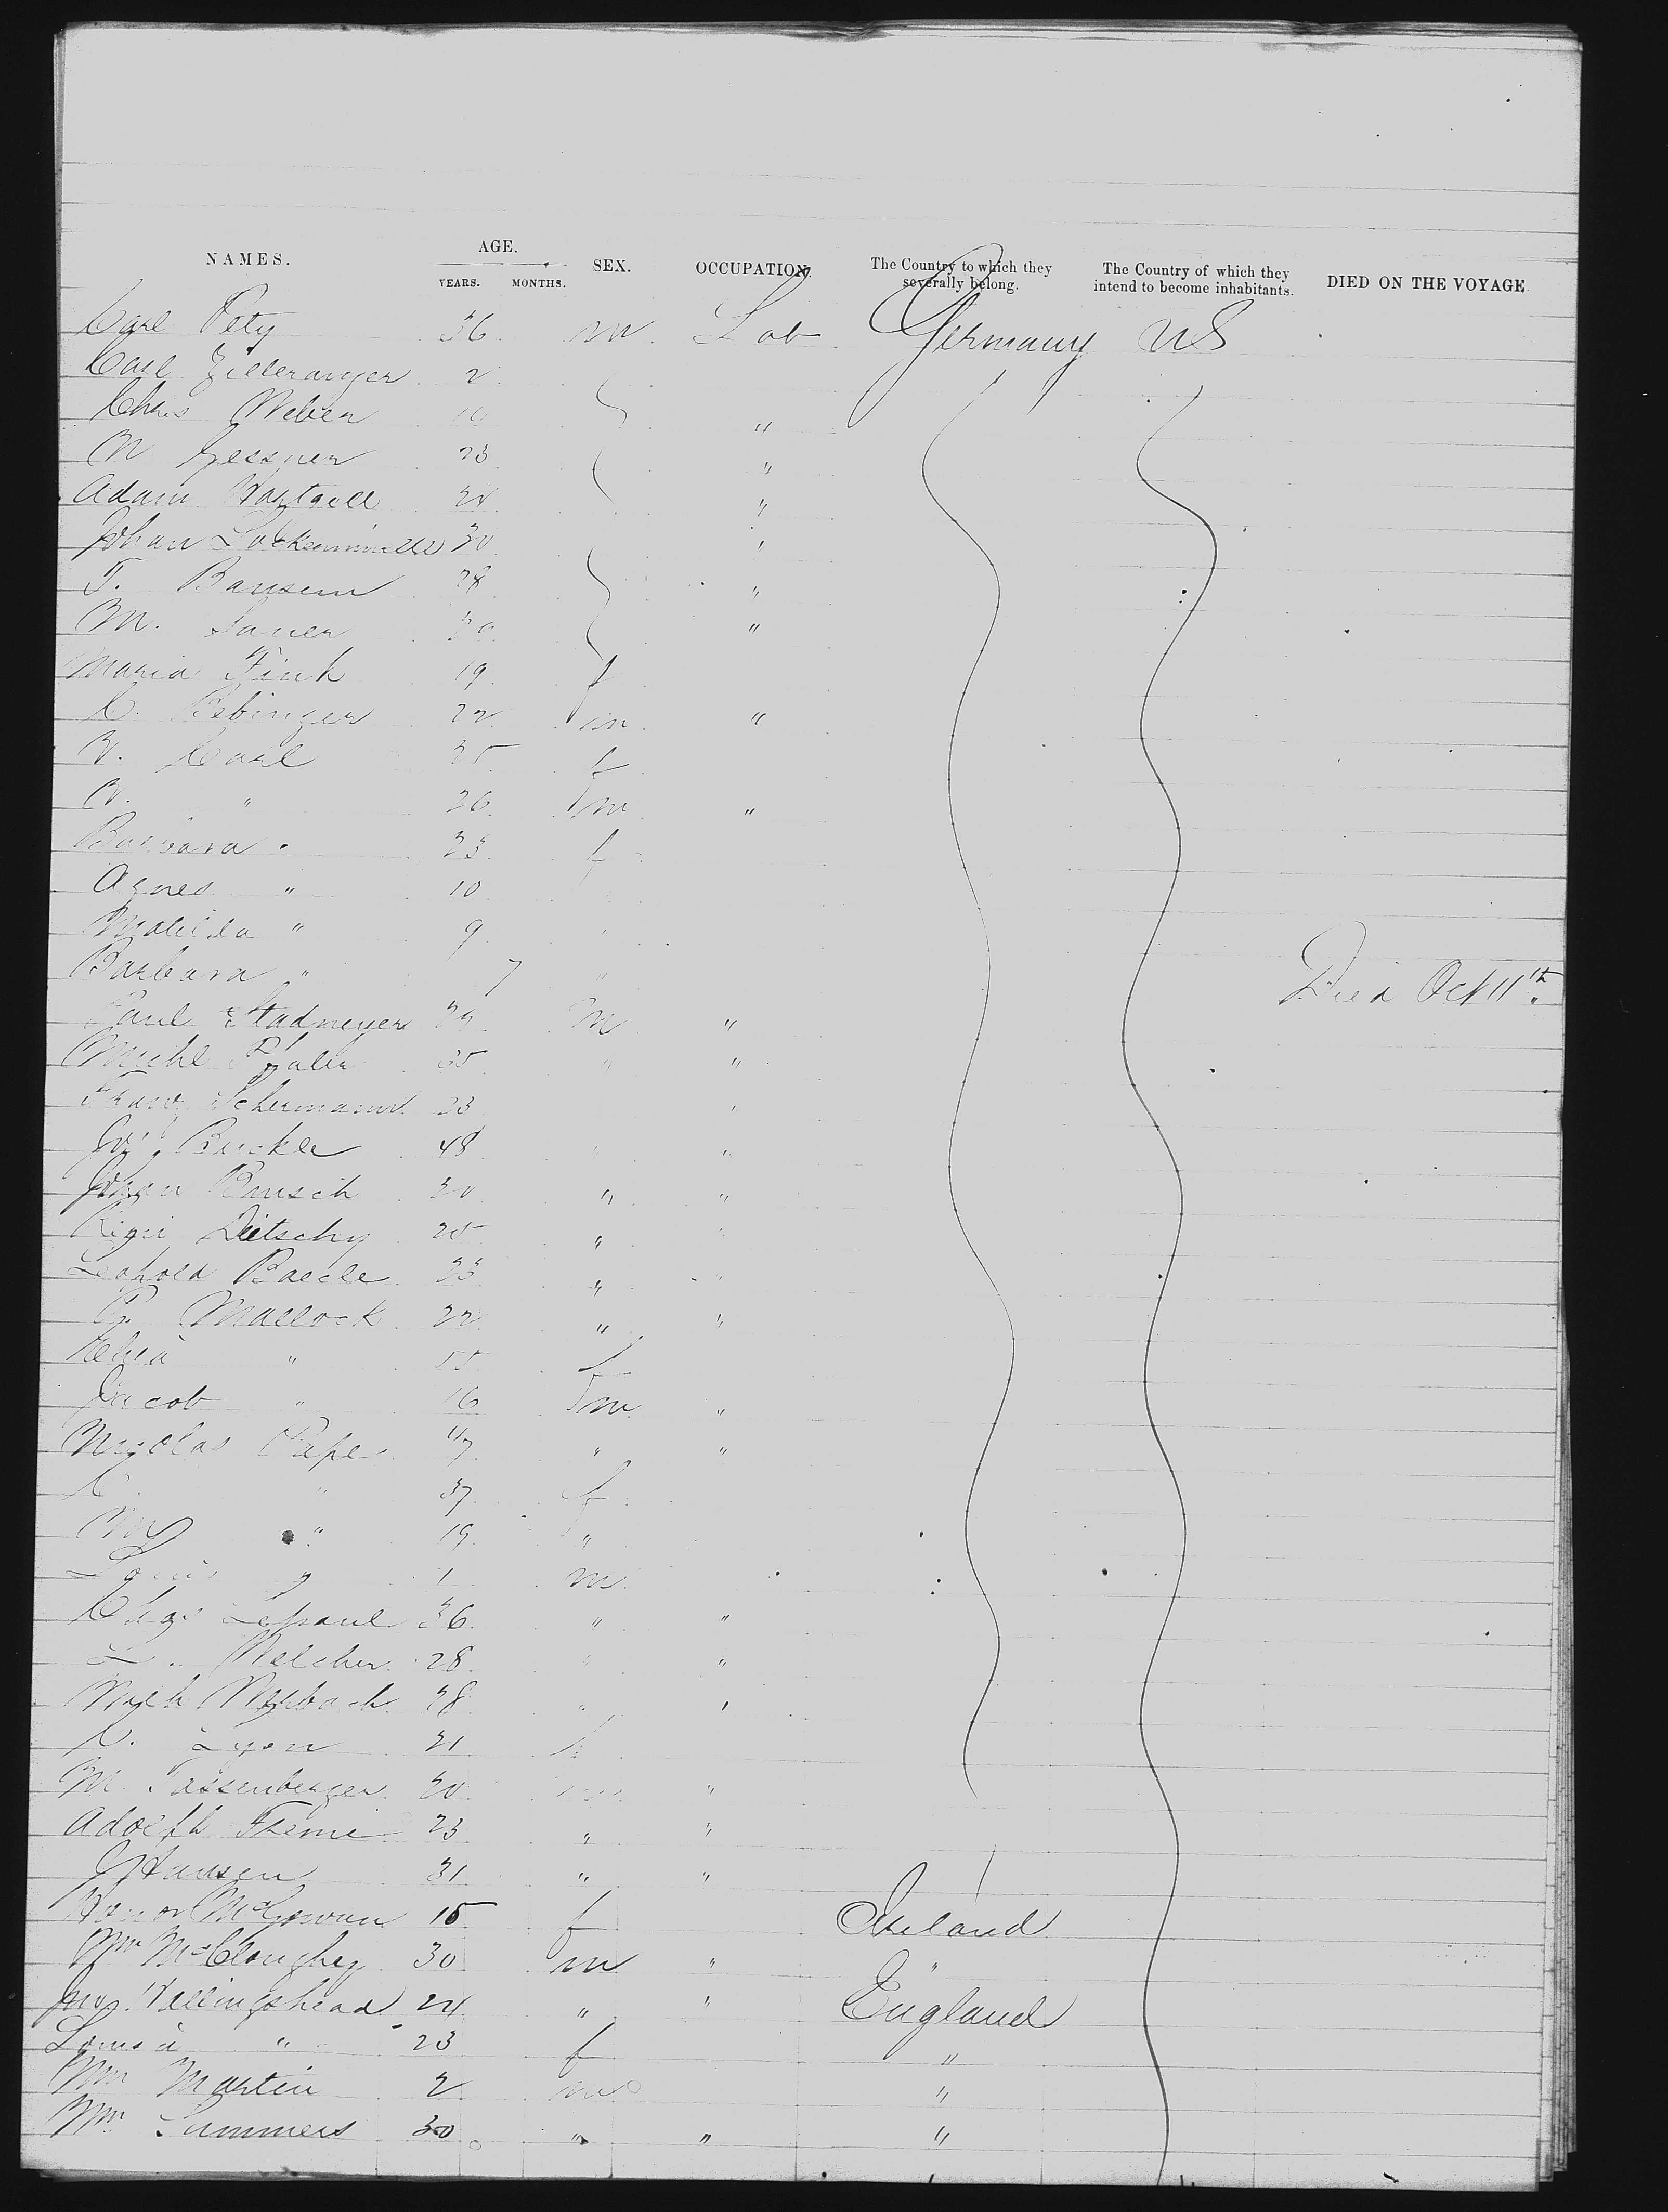 NAMES. AGE. YEARS. MONTHS. SEX. OCCUPATION. The Country to which they severally belong. The Country of which they intend to become inhabitants. DIED ON THE VOYAGE.
Carl Petz 36 m Lab Germany US
Carl Zilleranger 2
Chris Weber "
N Gessner 23 "
Adam 24 "
Johan 30 "
F. Bansem 28 "
M. Sauer 30 "
Maria Fink 19 f
C. Bebinger 22 m "
Carl 25 f
" 26 m "
Barbara " 23 f
Agnes " 10
Matilda " 9 "
Barbara " 7 " Died Oct 11th.
Paul Stadmeyer m "
Michl 35 " "
Franz Schumann 23 "
Jos. Buckle 48 " "
Johan Brusch 30 " "
Dietschy 25 " "
Leopold Baecle 23 " "
Mallock 22 " "
" 55 f
Jacob " 16 m "
Nicolas Pape 47 " "
C " 37 f
" 19 "
Louis " 1 m
Chas Lepaul 36 " "
L. Melcher 28 " "
Mich 28 " "
C. Lyon 21
M Tassenberger 30 m "
Adolph 23 " "
J Hansen 31 " "
McGowan 15 f Ireland
Wm McCloughey 30 m " "
Jno Hellingshead 24 " " England
Louisa " 23 f "
Wm Martin 2 m "
Wm Summers 30 " " "